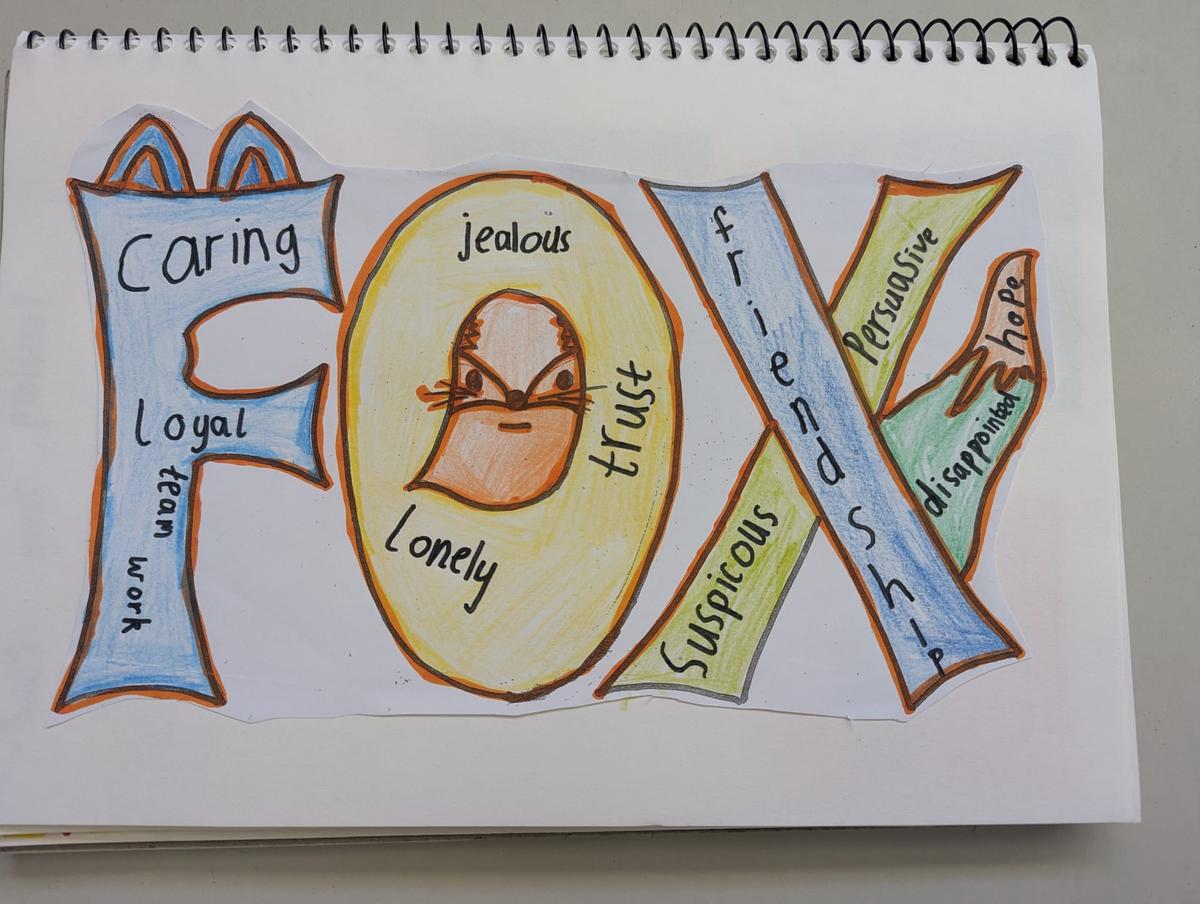 FOX
Caring
Loyal
team work
jealous
trust
Lonely
friendship
Persuasive
hope
disappointed
Suspicous